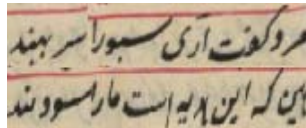 مرد گفت آری سبو را سر ببند
هین که این هدیه است ما را سودمند